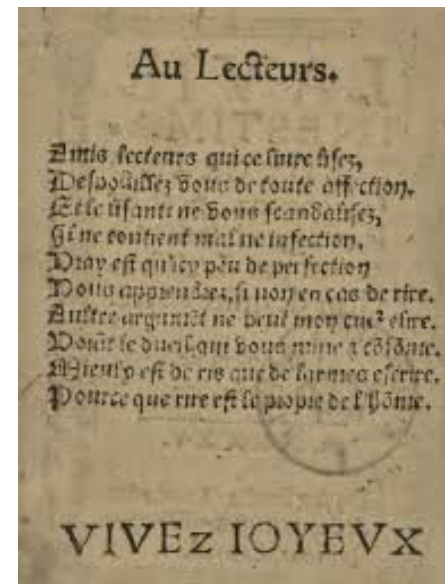 Au Lecteurs.
Amis lecteurs qui ce liure lisez,
Despouillez vous de toute affection.
Et le lisants ne vous scandalisez,
Il ne contient mal ne infection.
Vray est qu'icy peu de perfection
Vous apprendrez, si non en cas de rire.
Aultre argumēt ne peut mon cueꝰ elire.
Voiāt le dueil, qui vous mine & cōsōme,
Mieulx est de ris que de larmes escrire.
Pource que rire est le propre de l'hōme.
VIVEz IOYEVX